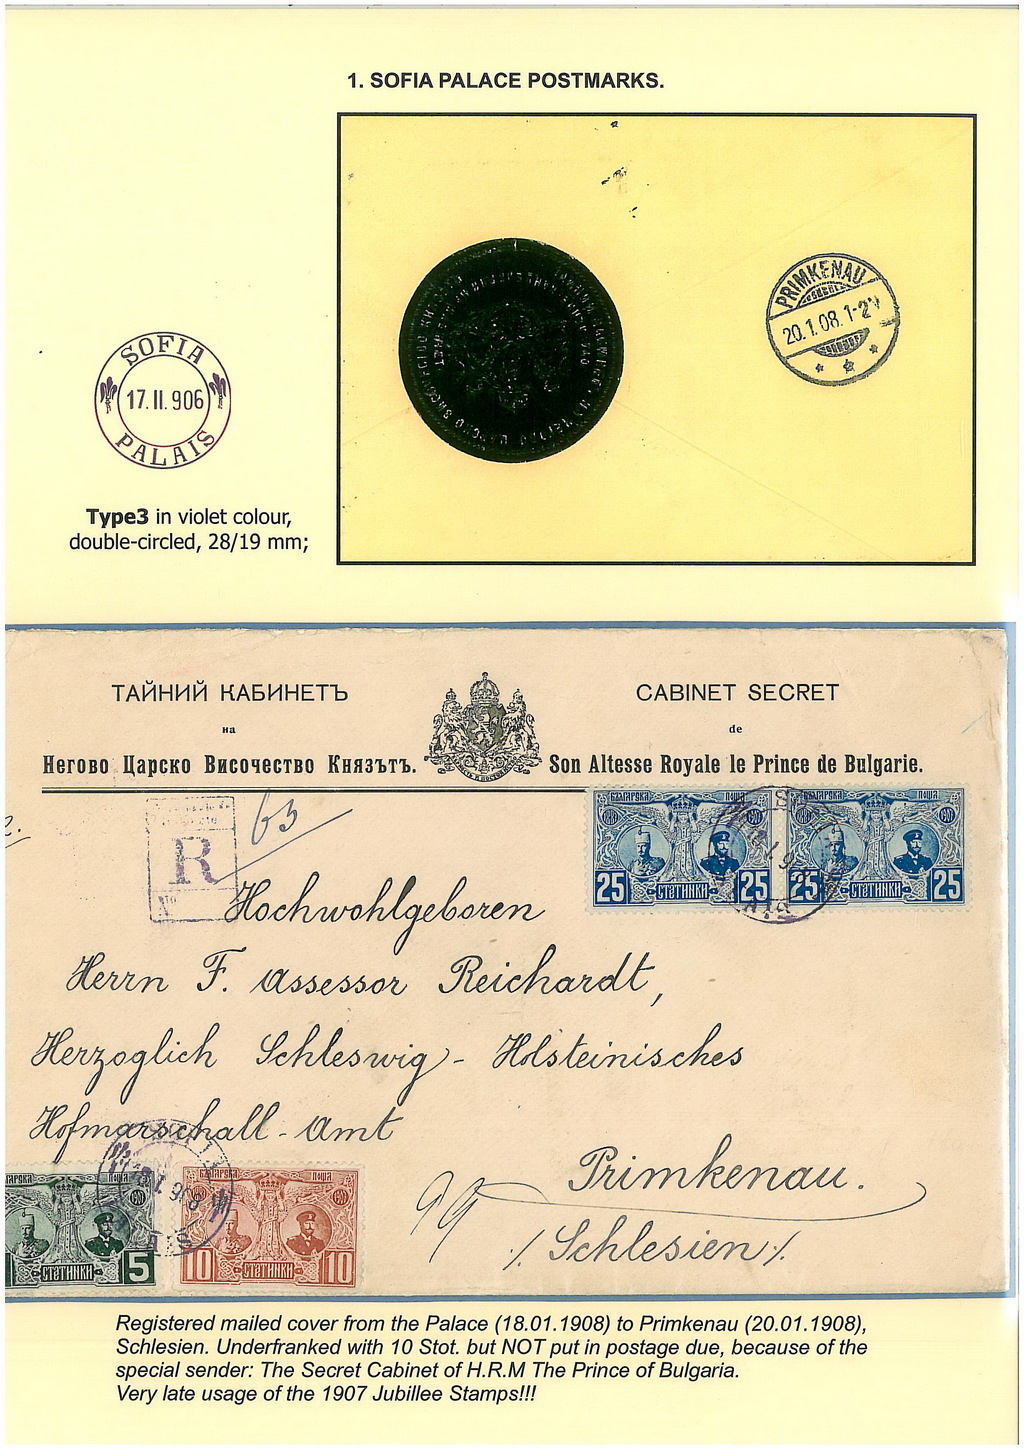 1. SOFIA PALACE POSTMARKS.
PRIMKENAU
20.1.08.1-2V
SOFIA
17.II.906
PALAIS
Type3 in violet colour,
double-circled, 28/19 mm;
ТАЙНИЙ КАБИНЕТЪ
на
Негово Царско Височество Князътъ.
CABINET SECRET
de
Son Altesse Royale le Prince de Bulgarie.
R
No
63
БЪЛГАРСКА ПОЩА
25 СТОТИНКИ 25
БЪЛГАРСКА ПОЩА
25 СТОТИНКИ 25
Hochwohlgeboren
Herrn F. Assessor Reichardt,
Herzoglich Schleswig-Holsteinisches
Hofmarschall-Amt
Primkenau.
./Schlesien/.
ПОЩА
СТОТИНКИ 5
БЪЛГАРСКА ПОЩА
10 СТОТИНКИ 10
Registered mailed cover from the Palace (18.01.1908) to Primkenau (20.01.1908),
Schlesien. Underfranked with 10 Stot. but NOT put in postage due, because of the
special sender: The Secret Cabinet of H.R.M The Prince of Bulgaria.
Very late usage of the 1907 Jubillee Stamps!!!